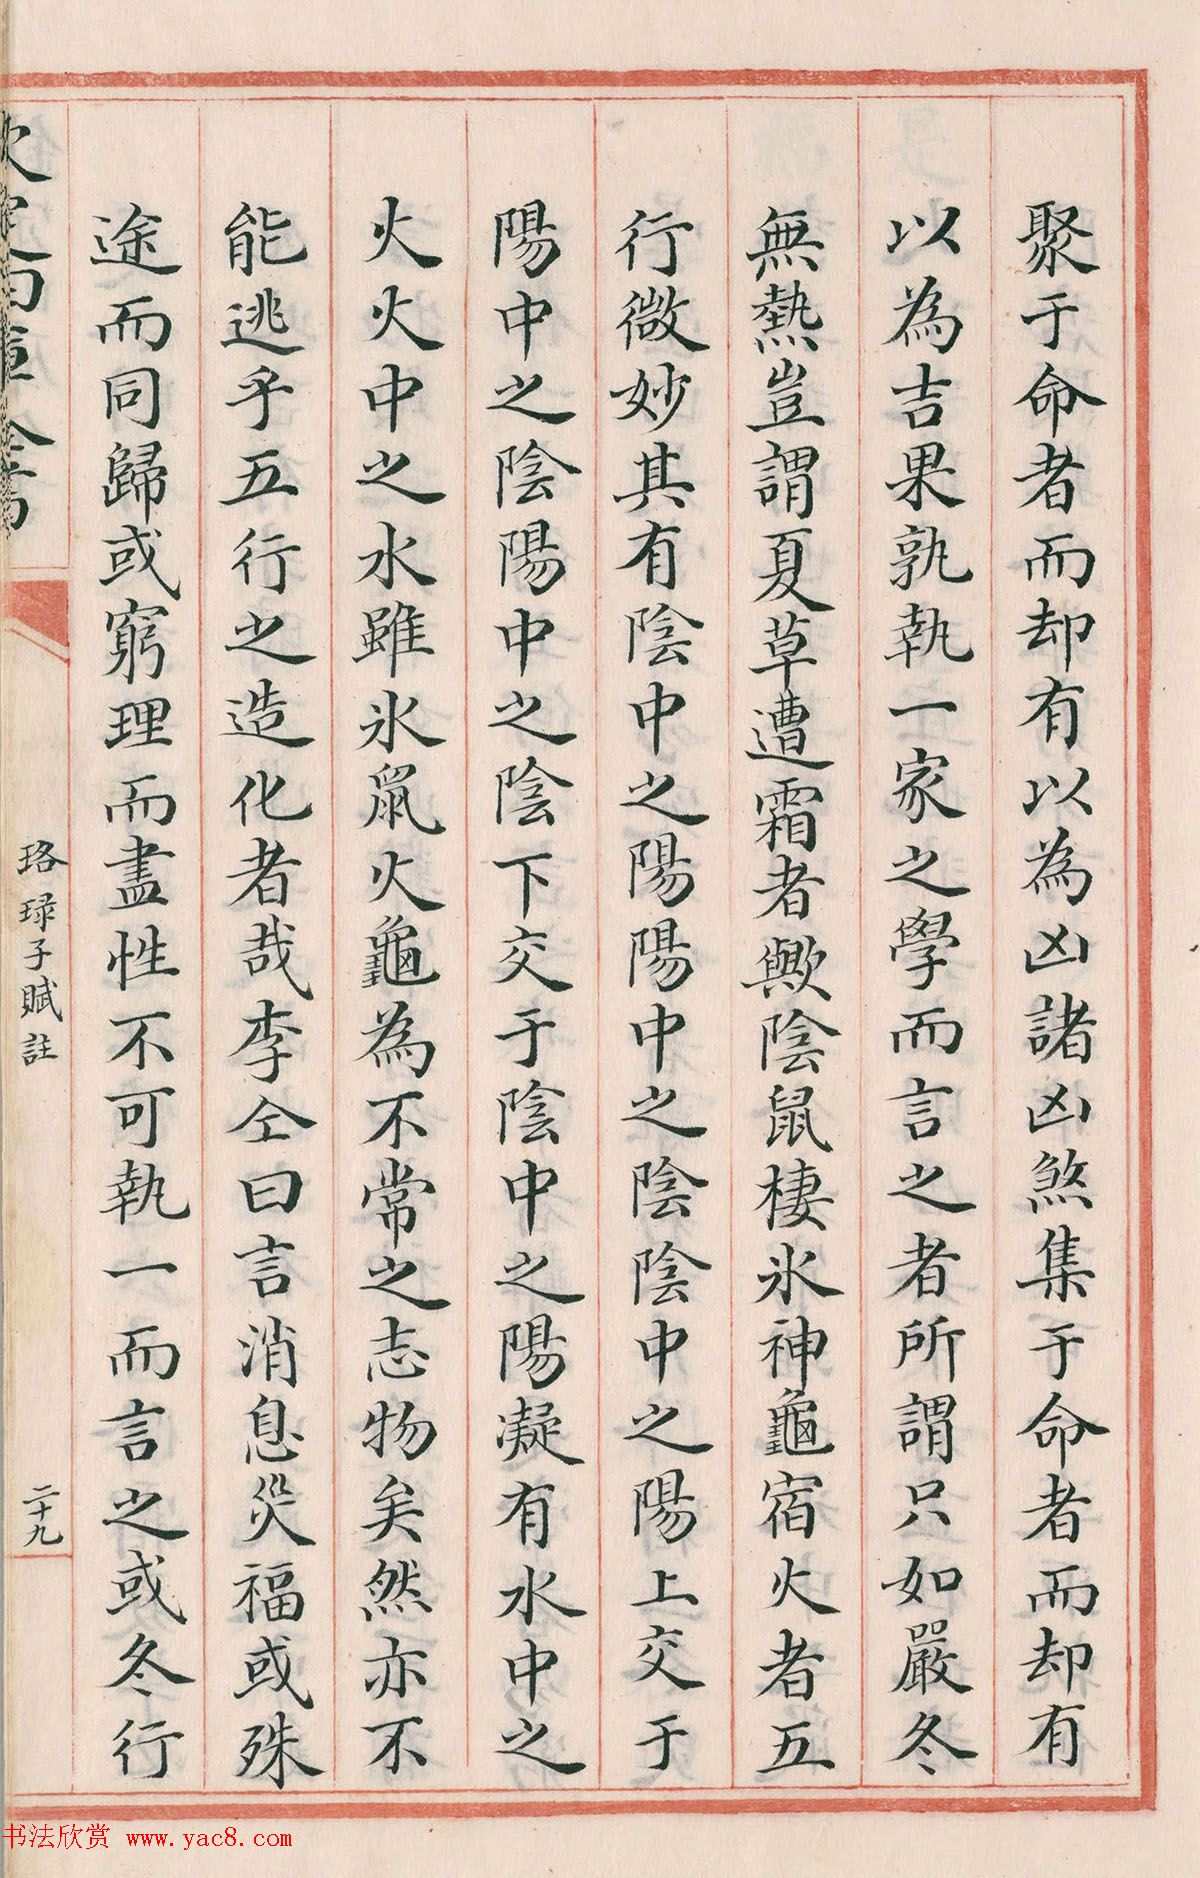 聚于命者而却有以為凶諸凶煞集于命者而却有
以為吉果孰執一家之學而言之者所謂只如嚴冬
無熱豈謂夏草遭霜者歟陰鼠棲氷神龜宿火者五
行微妙其有陰中之陽陽中之陰陰中之陽上交于
陽中之陰陽中之陰下交于陰中之陽凝有水中之
火火中之水雖氷鼠火龜為不常之志物矣然亦不
能逃乎五行之造化者哉李仝曰言消息災福或殊
途而同歸或窮理而盡性不可執一而言之或冬行
欽定四庫全書
珞琭子賦註
二十九
书法欣赏 www.yac8.com